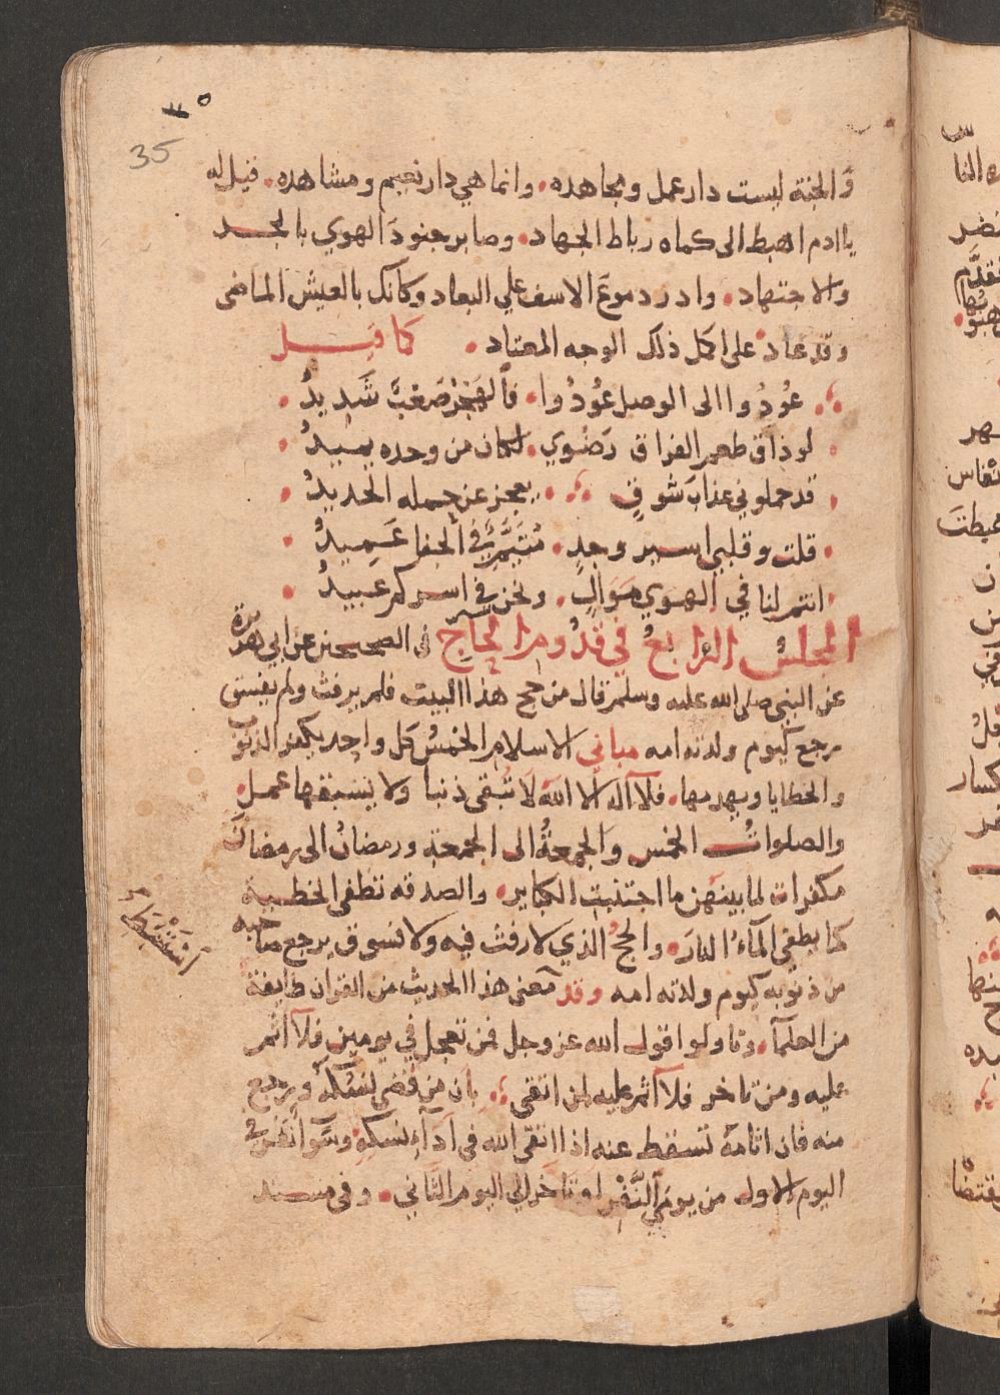 ٣٥
35
وَالجنة ليست دار عمل ومجاهده. وانما هي دار نعيم ومشاهده. فقيل له
ياادم اهبط الى كماه رباط الجهاد. وصابر جنودَ الهوي بالجــد
والاجتهاد. وادرد موعَ الاسف علي البعاد وكانك بالعيش الماضى
وقد عاد على اكمل ذلك الوجه المعتاد. كما قيــل
عُودُوا الى الوصل عُودُوا. فالهَجْرُ صَعْبٌ شَديدُ.
لو ذاق طعم الفراق رَضْوي. لكان من وجده يميدُ.
قد حملوني عذابَ شوقٍ. يعجز عن حمله الحديدُ.
قلت وقلبي اسير وجدٍ. مُتَيَّمٌ في الجفا عَمِيدُ.
انتم لنا في الهوي مَوَالٍ. ونحن في اسركم عبيدُ.
المجلسُ الرابعُ في قدُومِ الحاجِ فى الصحيحين عن ابي هريرة
عن النبي صلى الله عليه وسلم قال من حج هذا البيت فلم يرفث ولم يفسق
رجع كيوم ولدته امه مباني الاسلام الخمسُ كل واحد يكفر الذنوب
والخطايا ويهدمها. فلا اله الا الله لا تُبقى ذنبا ولا يسبقها عمل
والصلواتُ الخمس وَالجمعةُ الى الجمعة ورمضانُ الى رمضان
مكفرات لما بينهن ما اجتنبت الكباير. والصدقه تطفي الخطيــة
كما يطفي المآءُ النارَ. والحجُّ الذي لا رفث فيه ولا فسوق يرجع صاحبه
من ذنوبه كيوم ولدته امه وقد معنى هذا الحديث من القران طايفة
استنبط
من العلمآء. وتاولوا قول الله عز وجل فمن تعجل في يومين فلا اثم
عليه ومن تاخر فلا اثم عليه لمن اتقى. بان من قضى نسكه ورجع
منه فان اثامهُ تسقط عنه اذا اتقى الله في ادآء نسكه. وسَوآءٌ نفر في
اليوم الاول من يومَي النَّفْر او تاخر الي اليوم الثاني. وفى مسند